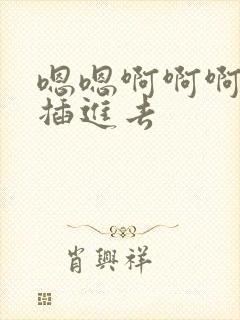 嗯嗯啊啊啊
插進去
肖興祥